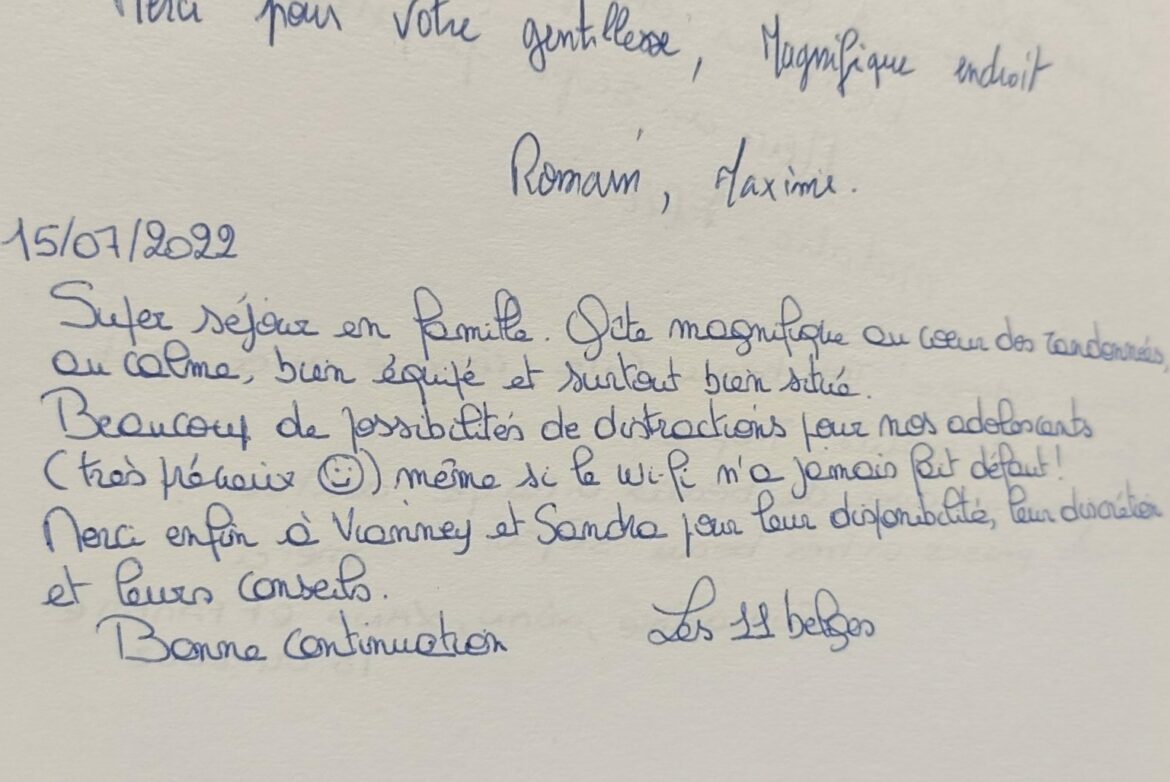 Merci pour votre gentillesse, Magnifique endroit
Romain, Maxime.
15/07/2022
Super séjour en famille. Gîte magnifique au coeur des randonnées,
au calme, bien équipé et surtout bien situé.
Beaucoup de possibilités de distractions pour nos adolescents
(très précieux ☺) même si le wi-fi n'a jamais fait défaut!
Merci enfin à Vianney et Sandra pour leur disponibilité, leur discrétion
et leurs conseils.
Bonne continuation
Les 11 belges